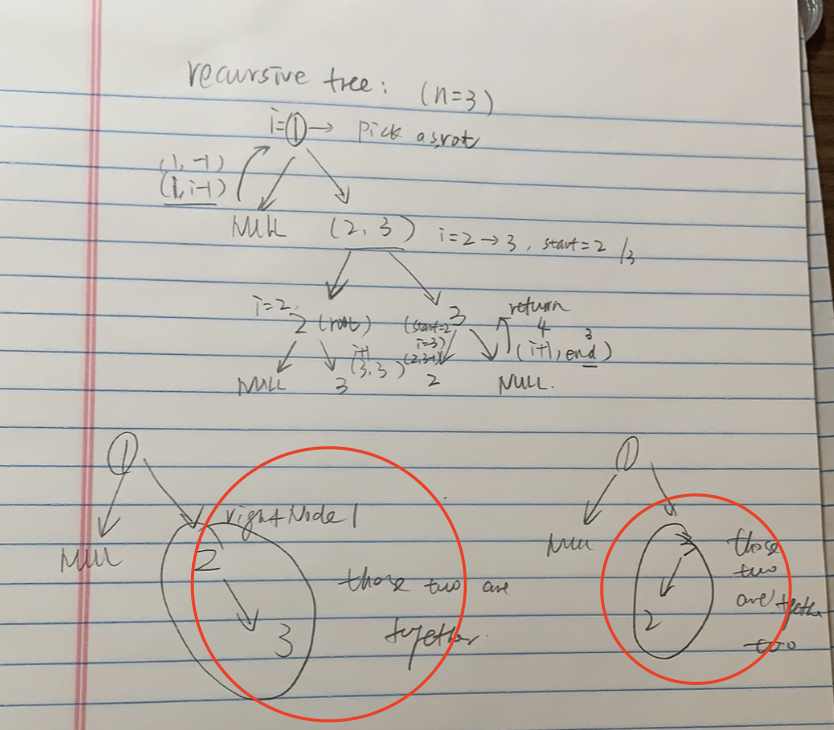 recursive tree: (n=3)
i=① → pick as rot
(1, -1)
(1, i-1)
NULL (2, 3) i=2→3, start=2/3
i=2,
2 (root)
(start=2 3 return
i=3) 4 3
i+1 (2,3-1) (i+1, end)
(3,3)
NULL 3 2 NULL.
① ①
right Node 1
NULL 2 those two are
3 together.
NULL 3 those
two
2 are together
too